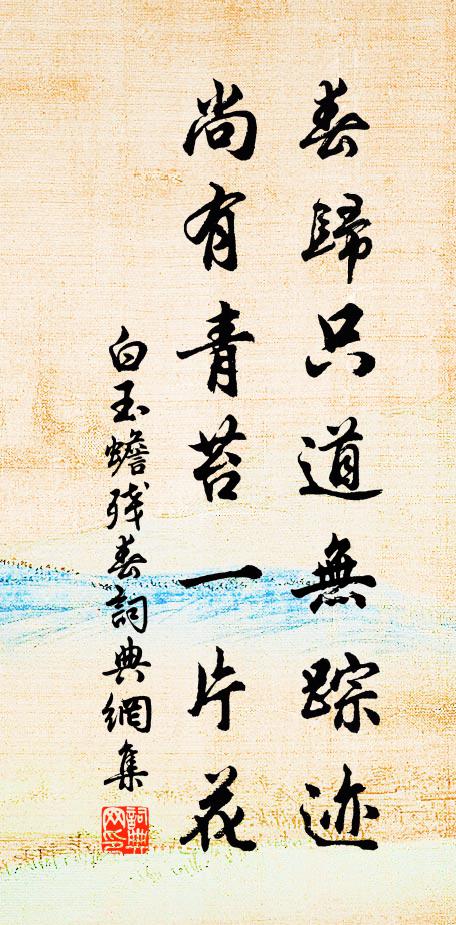 春歸只道無踪迹
尚有青苔一片花
白玉蟾残春詞典網集
詞典網印